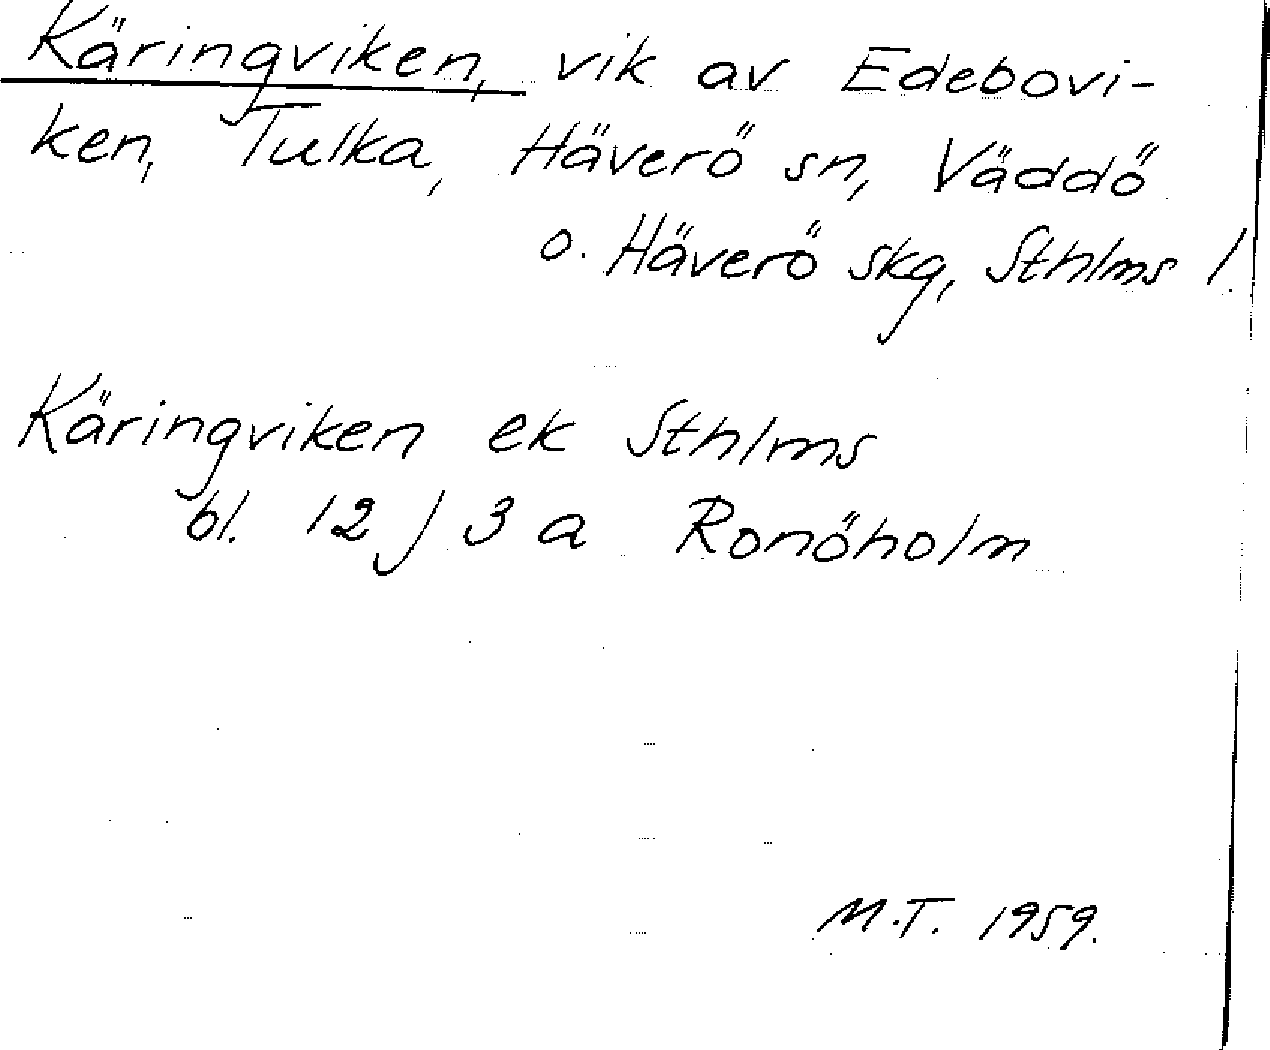 Käringviken, vik av Edebovi-
ken, Tulka, Häverö sn, Väddö
o. Häverö skg, Sthlms l.
Käringviken ek Sthlms
bl. 12 j 3 a Ronöholm
M.T. 1959.